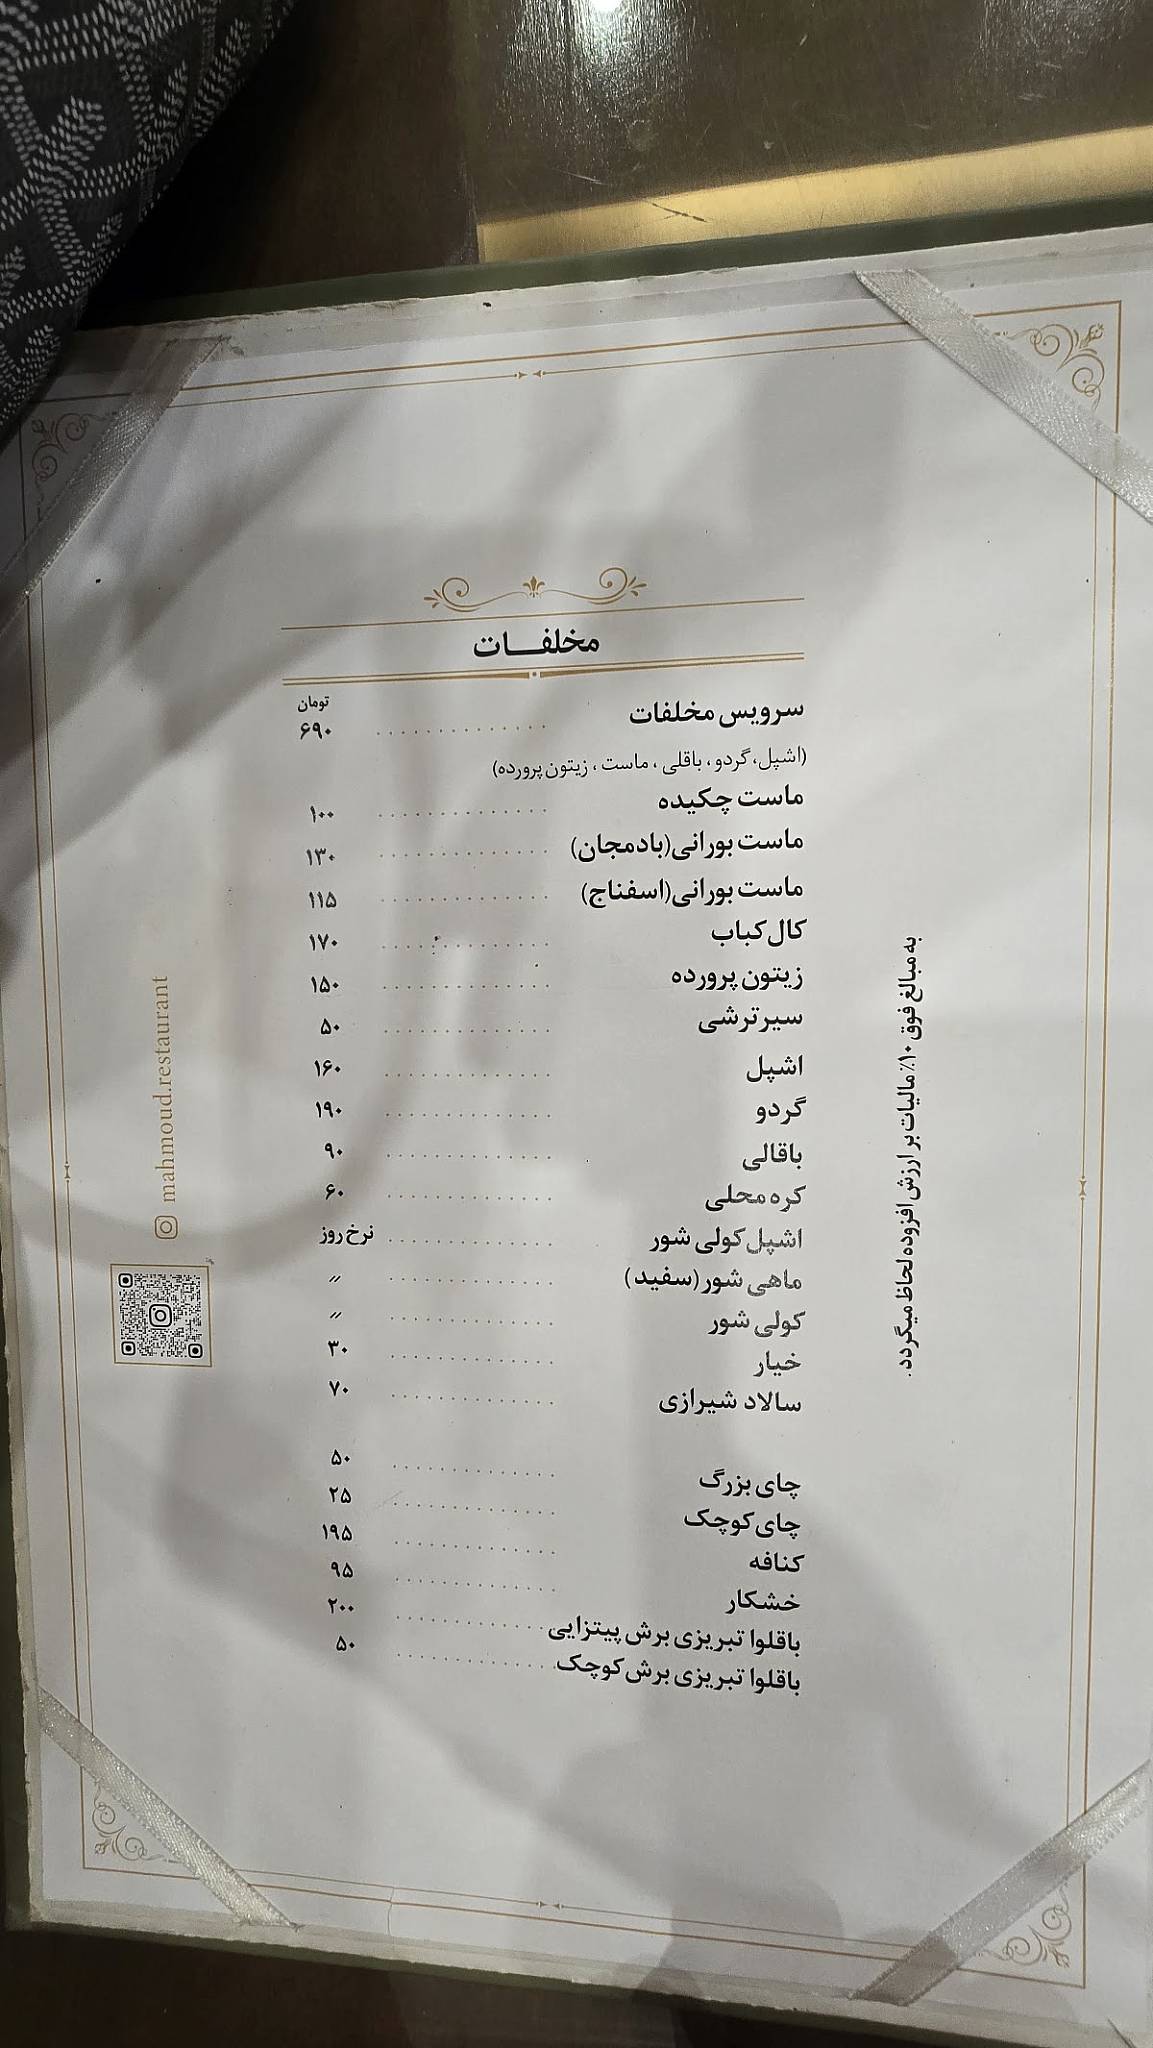 مخلفات
تومان
سرویس مخلفات ۶۹۰
(اشپل، گردو، باقلی، ماست، زیتون پرورده)
ماست چکیده ۱۰۰
ماست بورانی(بادمجان) ۱۳۰
ماست بورانی(اسفناج) ۱۱۵
کال کباب ۱۷۰
زیتون پرورده ۱۵۰
سیرترشی ۵۰
اشپل ۱۶۰
گردو ۱۹۰
باقالی ۹۰
کره محلی ۶۰
اشپل کولی شور نرخ روز
ماهی شور(سفید)〃
کولی شور 〃
خیار ۳۰
سالاد شیرازی ۷۰
چای بزرگ ۵۰
چای کوچک ۲۵
کنافه ۱۹۵
خشکار ۹۵
باقلوا تبریزی برش پیتزایی ۲۰۰
باقلوا تبریزی برش کوچک ۵۰
به مبالغ فوق ۱۰٪ مالیات بر ارزش افزوده لحاظ میگردد.
mahmoud.restaurant